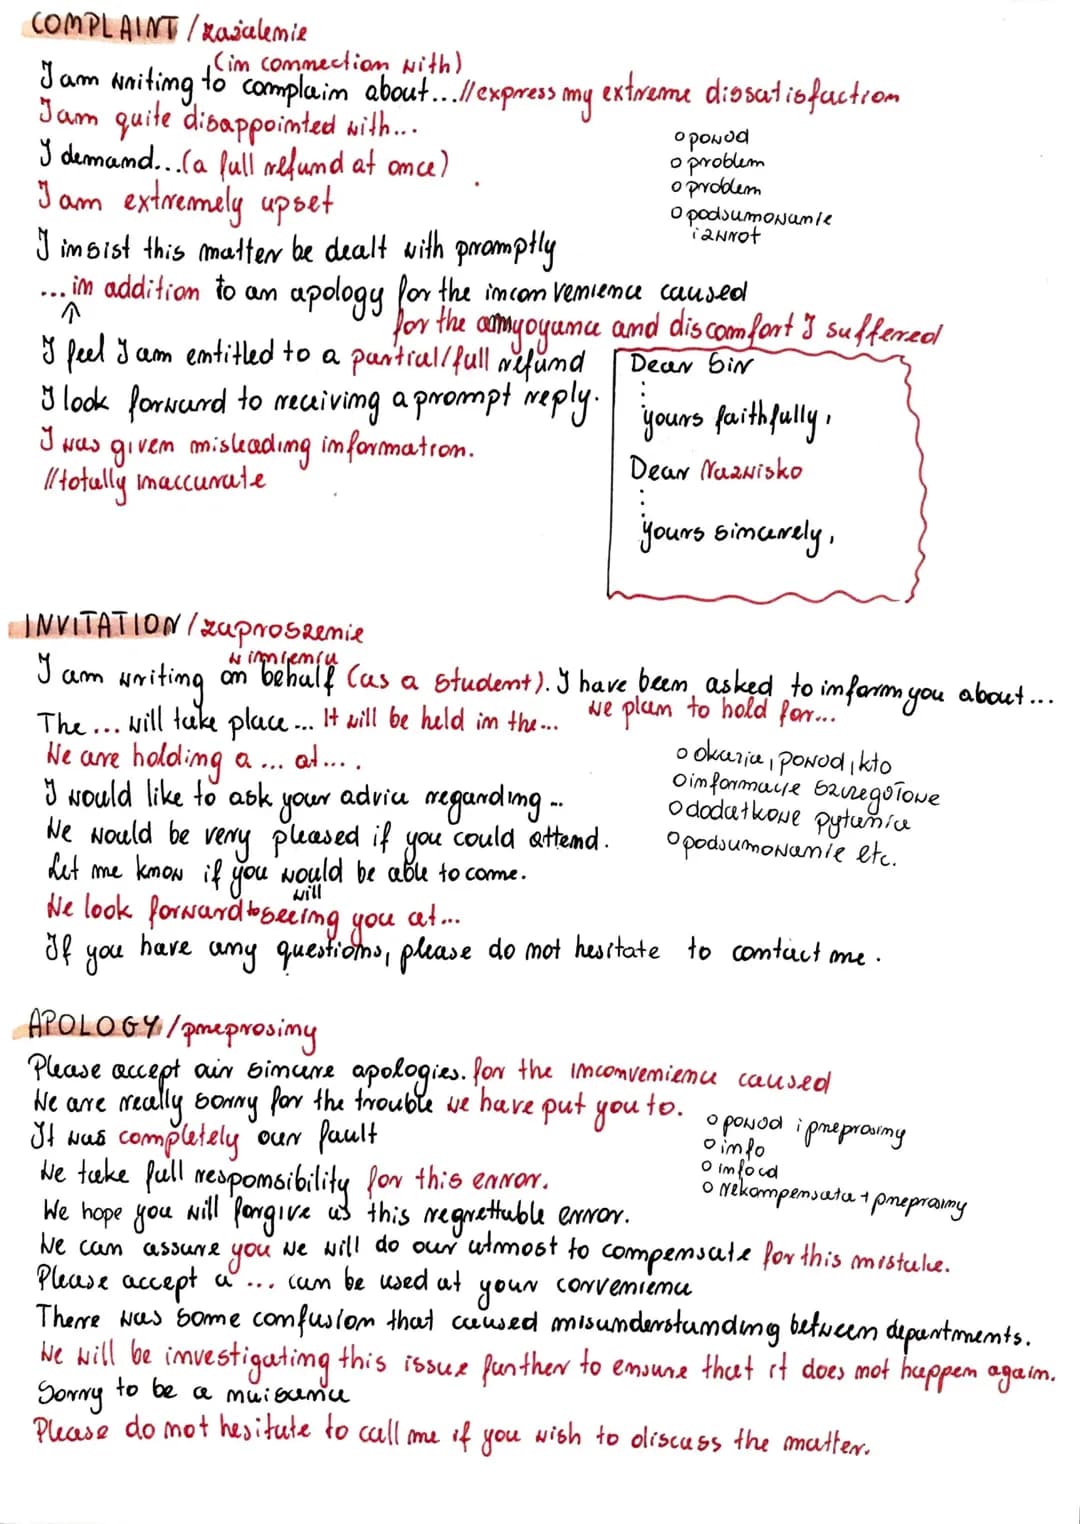 COMPLAINT / zażalenie
(in connection with)
I am writing to complain about...//express my extreme dissatisfaction
I am quite disappointed with...
o powód
I demand...(a full refund at once)
o problem
o problem
I am extremely upset
o podsumowanie
i zwrot
I insist this matter be dealt with promptly
... in addition to an apology for the inconvenience caused
for the annyoyance and discomfort I suffered
I feel I am entitled to a partial/full refund
Dear Sir
I look forward to receiving a prompt reply.
yours faithfully,
I was given misleading information.
Dear Nazwisko
//totally inaccurate
yours sincerely,
INVITATION / zaproszenie
w imieniu
I am writing on behalf (as a student). I have been asked to inform you about...
The ... will take place ... It will be held in the... we plan to hold for...
We are holding a ... at....
o okazja, powód, kto
I would like to ask your advice regarding ...
o informacje szczegółowe
o dodatkowe pytania
We would be very pleased if you could attend.
o podsumowanie etc.
Let me know if you would be able to come.
will
We look forward to seeing you at...
If you have any questions, please do not hesitate to contact me.
APOLOGY / przeprosiny
Please accept our sincere apologies. for the inconvenience caused
We are really sorry for the trouble we have put you to.
o powód i przeprosiny
It was completely our fault
o info
o info cd
We take full responsibility for this error.
o rekompensata + przeprosiny
We hope you will forgive us this regrettable error.
We can assure you we will do our utmost to compensate for this mistake.
Please accept a ... can be used at your convenience
There was some confusion that caused misunderstanding between departments.
We will be investigating this issue further to ensure that it does not happen again.
Sorry to be a nuisance
Please do not hesitate to call me if you wish to discuss the matter.